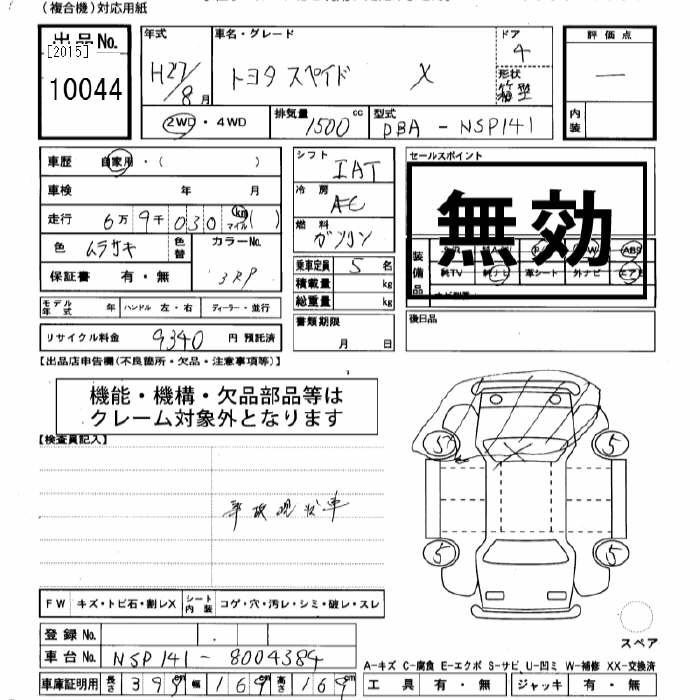 （複合機）対応用紙
出品No. 年式 車名・グレード ドア 評価点
[2015] 4
10044 H27/8月 トヨタ スペイド X 形状 箱型 —
2WD・4WD 排気量 1500cc 型式 DBA-NSP141 内装
車歴 自家用・（ ） シフト IAT セールスポイント
車検 年 月 冷房 AC
無効
走行 6万9千030 km マイル（ ） 燃料 ガソリン
色 ムラサキ 色替 カラーNo. 3RP 乗車定員 5名 装備品 ABS
保証書 有・無 積載量 kg 純TV 純ナビ 革シート 外ナビ エアB
モデル年式 年 ハンドル 左・右 ディーラー・並行 総重量 kg
リサイクル料金 9340 円 預託済 書類期限 月 日 後日品
【出品店申告欄（不良箇所・欠品・注意事項等）】
機能・機構・欠品部品等は
クレーム対象外となります
【検査員記入】
5 5
事故現状車
5 5
FW キズ・トビ石・割レX シート内装 コゲ・穴・汚レ・シミ・破レ・スレ
登録No. スペア
車台No. NSP141-8004384
A-キズ C-腐食 E-エクボ S-サビ U-凹ミ W-補修 XX-交換済
車庫証明用 長さ 399cm 幅 169cm 高さ 169cm 工具 有・無 ジャッキ 有・無